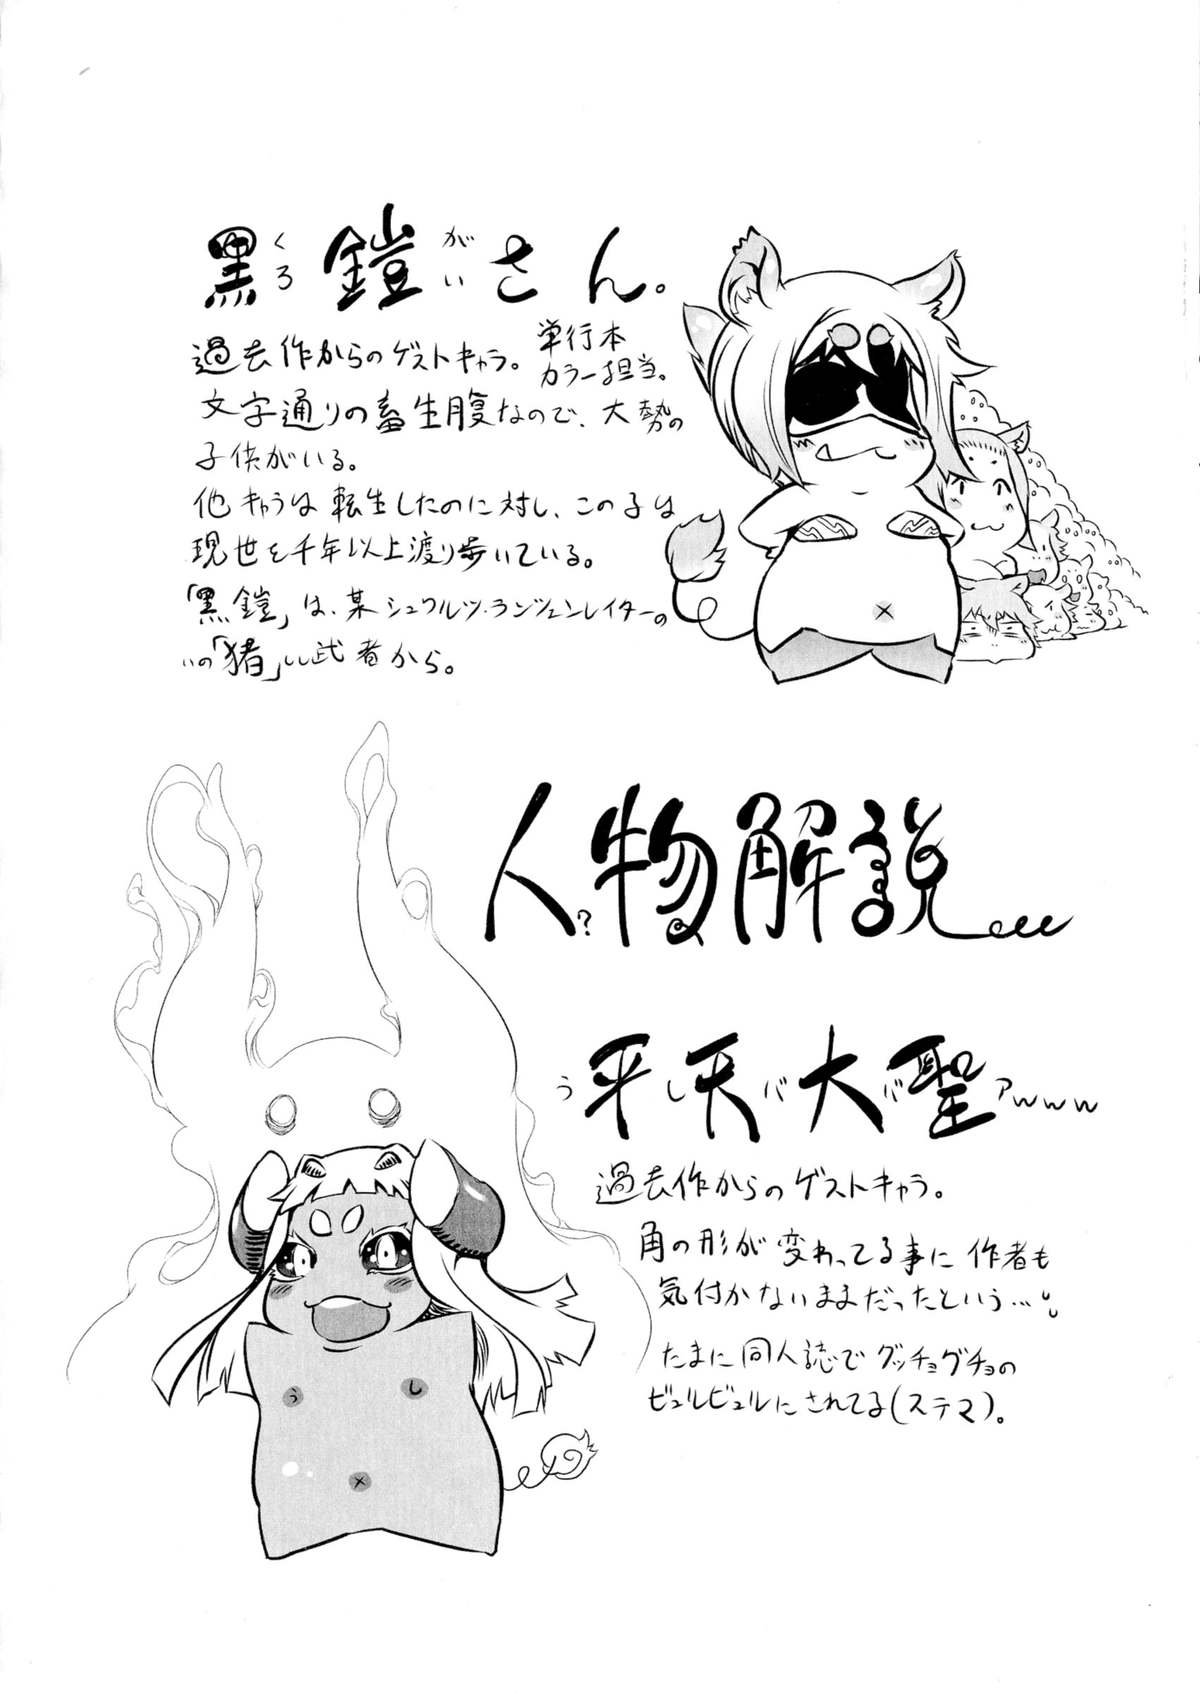 黒鎧さん。
くろ がい
過去作からのゲストキャラ。
単行本
カラー担当。
文字通りの畜生腹なので、大勢の
子供がいる。
他キャラは転生したのに対し、この子は
現世を千年以上渡り歩いている。
「黒鎧」は、某シュワルツ・ランツェンレイターの
いの「猪」い武者から。
人物解説
?
平天大聖
うしバババアwww
過去作からのゲストキャラ。
角の形が変わってる事に作者も
気付かないままだったという…。
たまに同人誌でグッチョグチョの
ビュルビュルにされてる(ステマ)。
う
し